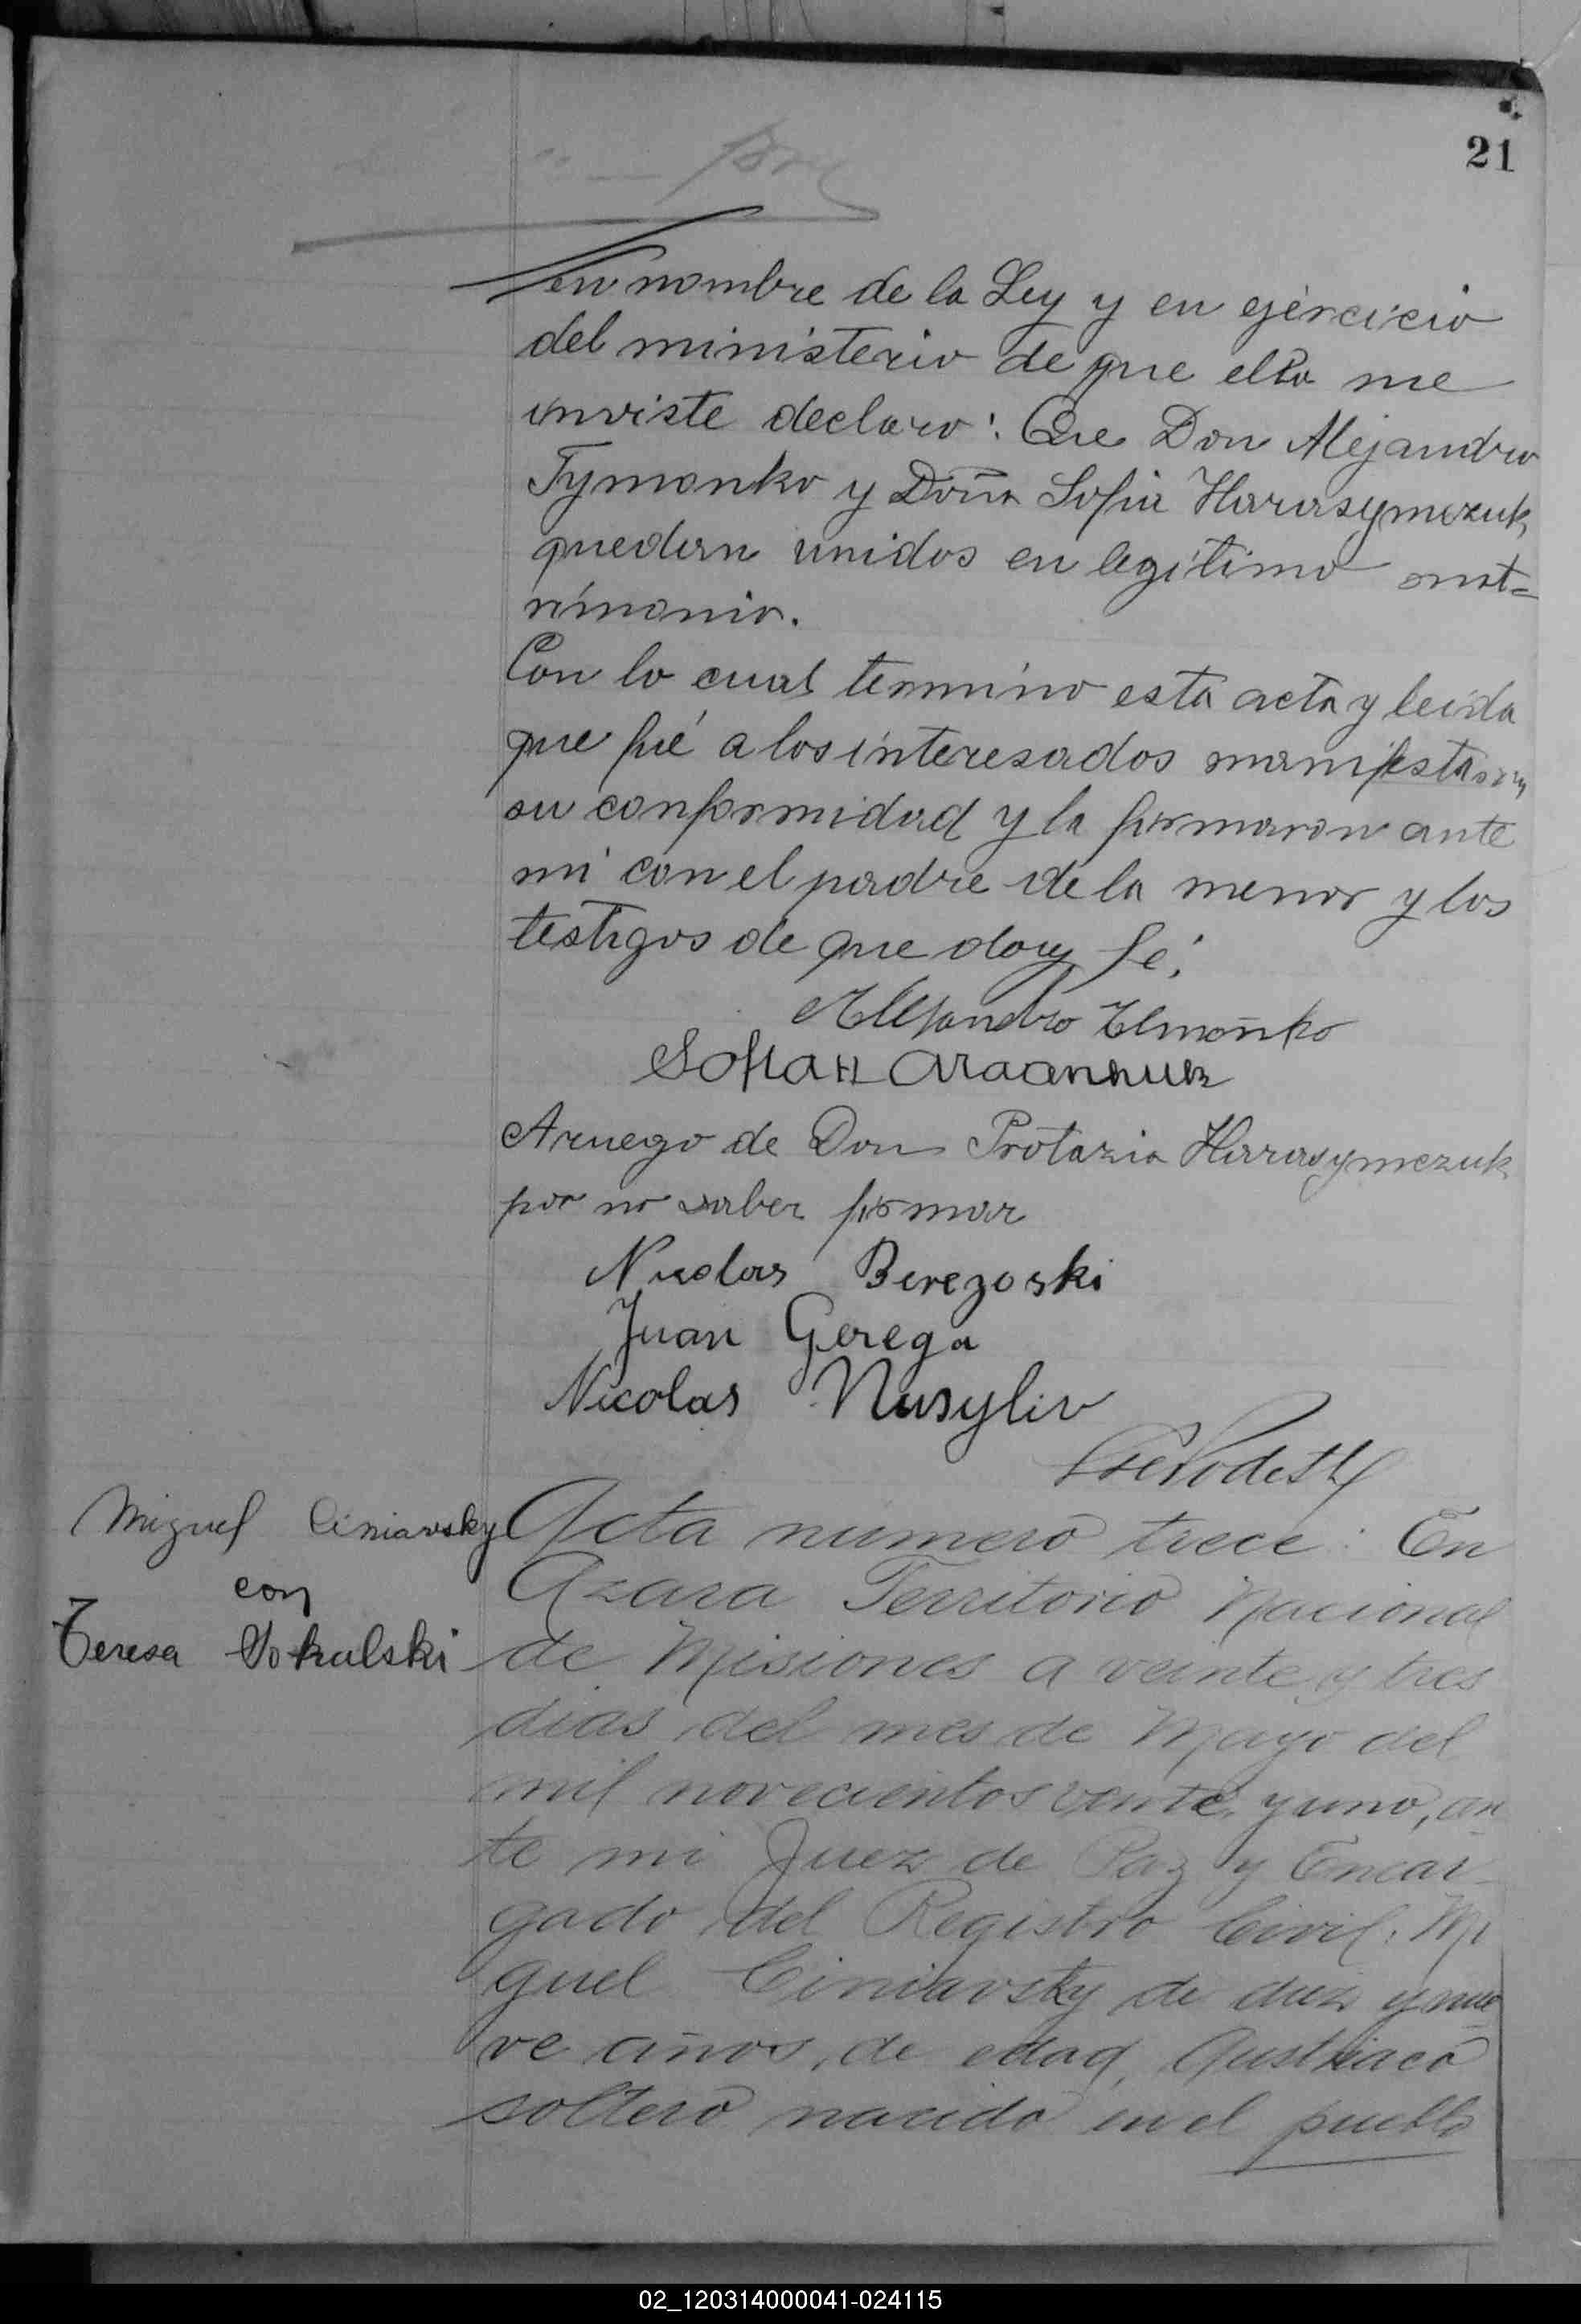 21
en nombre de la Ley y en ejercicio
del ministerio de que ella me
inviste declaro: Que Don Alejandro
Tymonko y Doña Sofia Harasymczuk,
quedan unidos en legítimo mat=
rimonio.
Con lo cual termino esta acta y leida
que fué a los interesados manifestaron
su conformidad y la firmaron ante
mi con el padre de la menor y los
testigos de que doy fé.
Alejandro
Sofia
Aruego de Don Protazio Harasymczuk
por no saber firmar
Nicolas Berezoski
Juan Gerega
Nicolas Musyliv
Miguel Ciniavsky
con
Teresa Sokulski
Acta numero trece: En
Azara Territorio Nacional
de Misiones a veinte y tres
dias del mes de Mayo del
mil novecientos veinte y uno, an
te mi Juez de Paz y Encar
gado del Registro Civil: Mi
guel Ciniavsky de diez y nue
ve años, de edad, Austriaco
soltero nacido en el pueblo
02_120314000041-024115